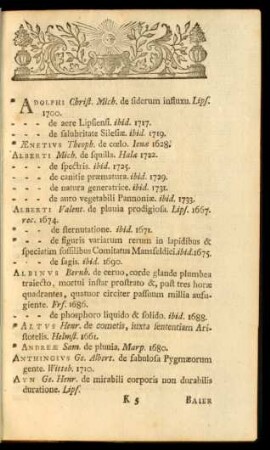 * ADOLPHI Christ. Mich. de siderum influxu. Lips.
1700.
- - - de aere Lipsiensi. ibid. 1717.
- - - de salubritate Silesiæ. ibid. 1719.
* ÆNETIVS Theoph. de cœlo. Ienæ 1628.
ALBERTI Mich. de squilla. Halæ 1722.
- - - de spectris. ibid. 1725.
- - - de canitie præmatura. ibid. 1729.
- - - de natura generatrice. ibid. 1731.
- - - de auro vegetabili Pannoniæ. ibid. 1733.
ALBERTI Valent. de pluuia prodigiosa. Lips. 1667.
rec. 1674.
- - - de sternutatione. ibid. 1671.
* - - de figuris variarum rerum in lapidibus &
speciatim fossilibus Comitatus Mansfeldici. ibid. 1675.
- - - de sagis. ibid. 1690.
ALBINVS Bernh. de ceruo, corde glande plumbea
traiecto, mortui instar prostrato &, past tres horæ
quadrantes, quatuor circiter passuum millia aufu-
giente. Frf. 1686.
- - - de phosphoro liquido & solido. ibid. 1688.
* ALTVS Henr. de cometis, iuxta sententiam Ari-
stotelis. Helmst. 1661.
* ANDREÆ Sam. de pluuia. Marp. 1680.
ANTHINGIVS Ge. Albert. de fabulosa Pygmæorum
gente. Wittsb. 1710.
AVN Ge. Henr. de mirabili corporis non durabilis
duratione. Lips.
K 5 BAIER